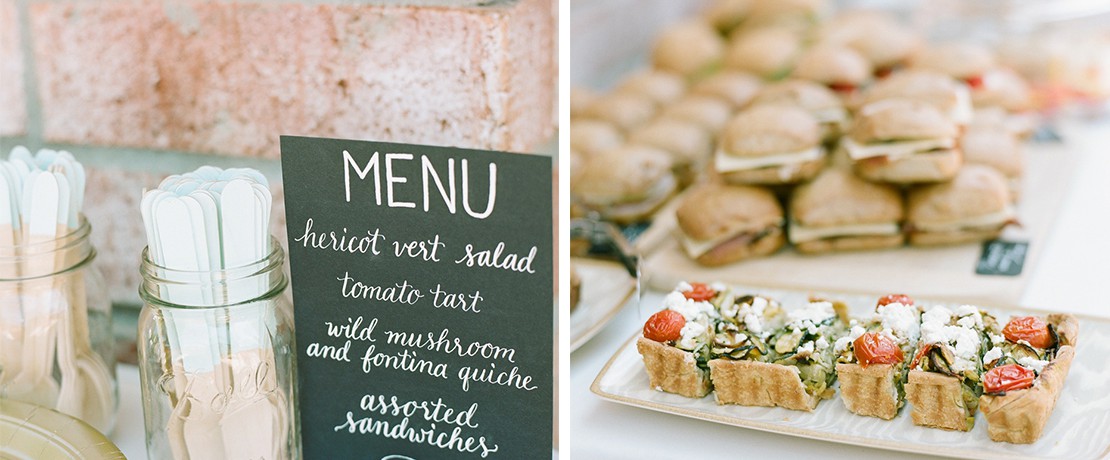 MENU
hericot vert salad
tomato tart
wild mushroom
and fontina quiche
assorted
sandwiches